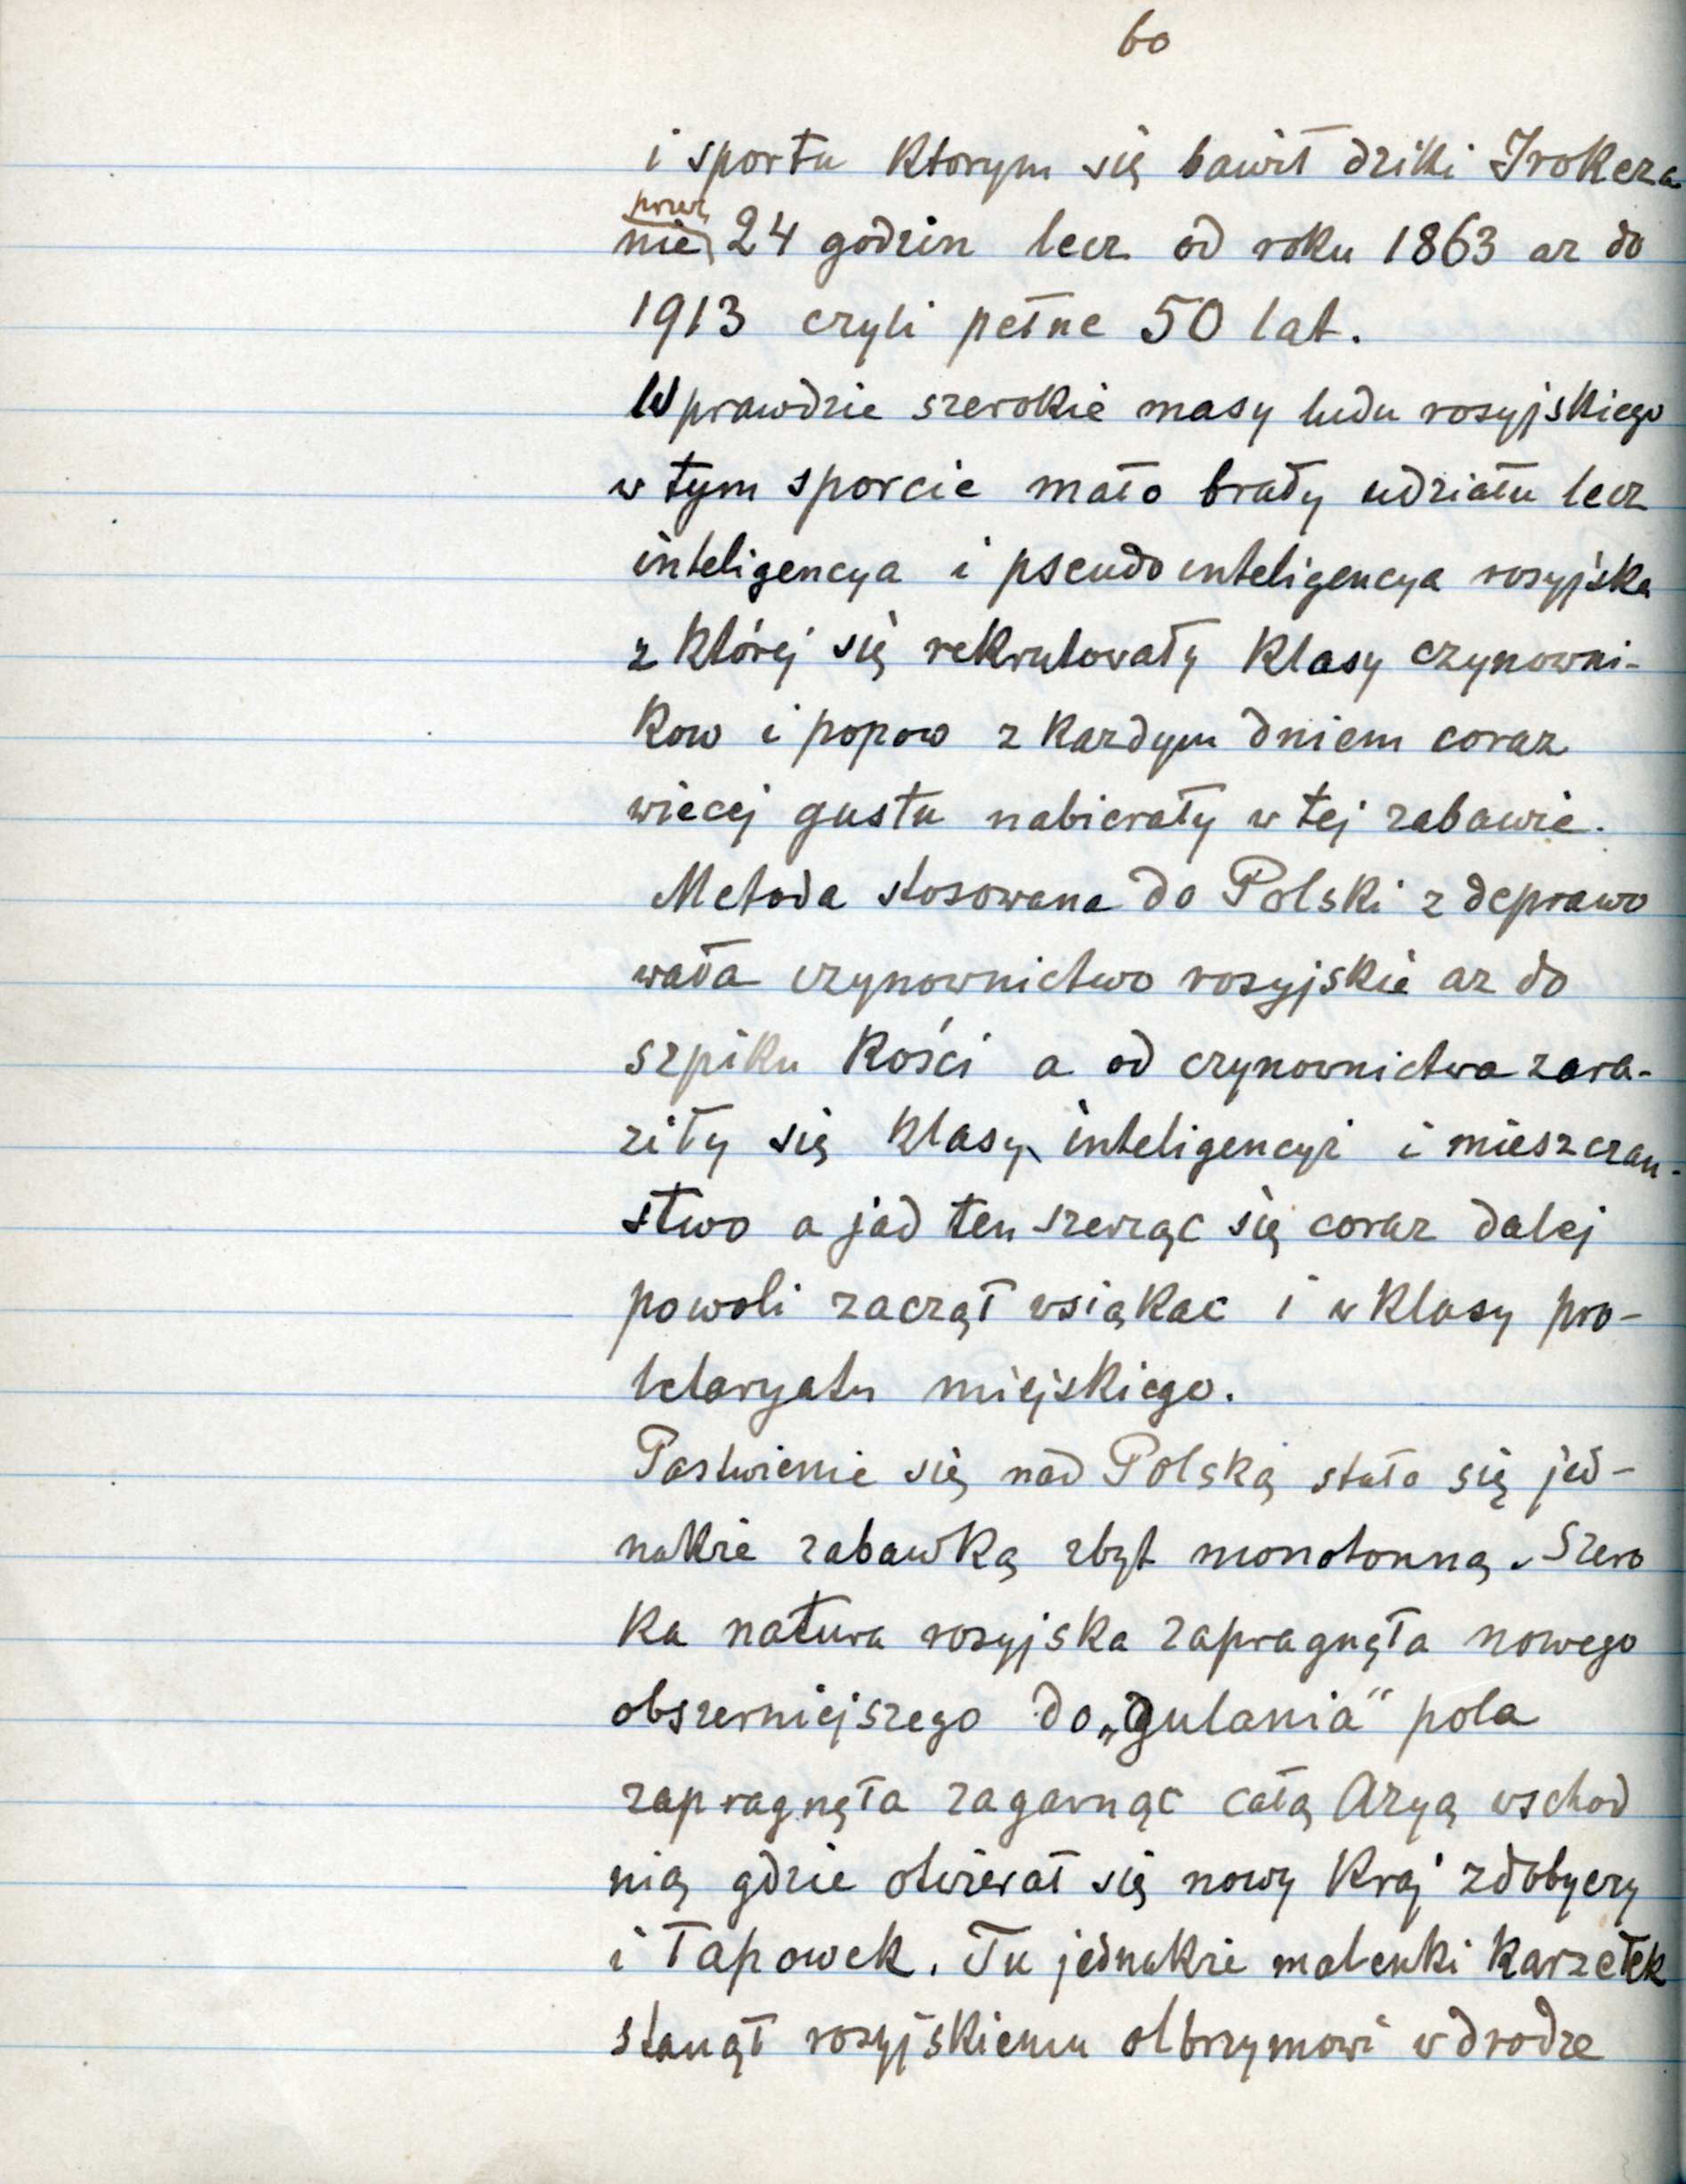 60
i sportu ktorym się bawił dziki Irokeza
przez
nie 24 godzin lecz od roku 1863 az do
1913 czyli pełne 50 lat.
Wprawdzie szerokie masy ludu rosyjskiego
w tym sporcie mało brały udziału lecz
inteligencya i pseudo inteligencya rosyjska
z której się rekrutowały klasy czynowni-
kow i popow z kazdym dniem coraz
wiecej gustu nabierały w tej zabawie.
Metoda stosowana do Polski zdeprawo
wała czynownictwo rosyjskie az do
szpiku kości a od czynownictwa zara-
ziły się klasy inteligencyi i mieszczan-
stwo a jad ten szerząc się coraz dalej
powoli zaczął wsiąkac i w klasy pro-
letaryatu miejskiego.
Pastwienie się nad Polską stało się jed-
nakze zabawką zbyt monotonną. Szero
ka natura rosyjska zapragnęła nowego
obszerniejszego do „gulania“ pola
zapragnęła zagarnąc całą Azyą wschod
nią gdzie otwierał się nowy kraj zdobyczy
i łapowek. Tu jednakze malenki karzełek
stanął rosyjskiemu olbrzymowi w drodze